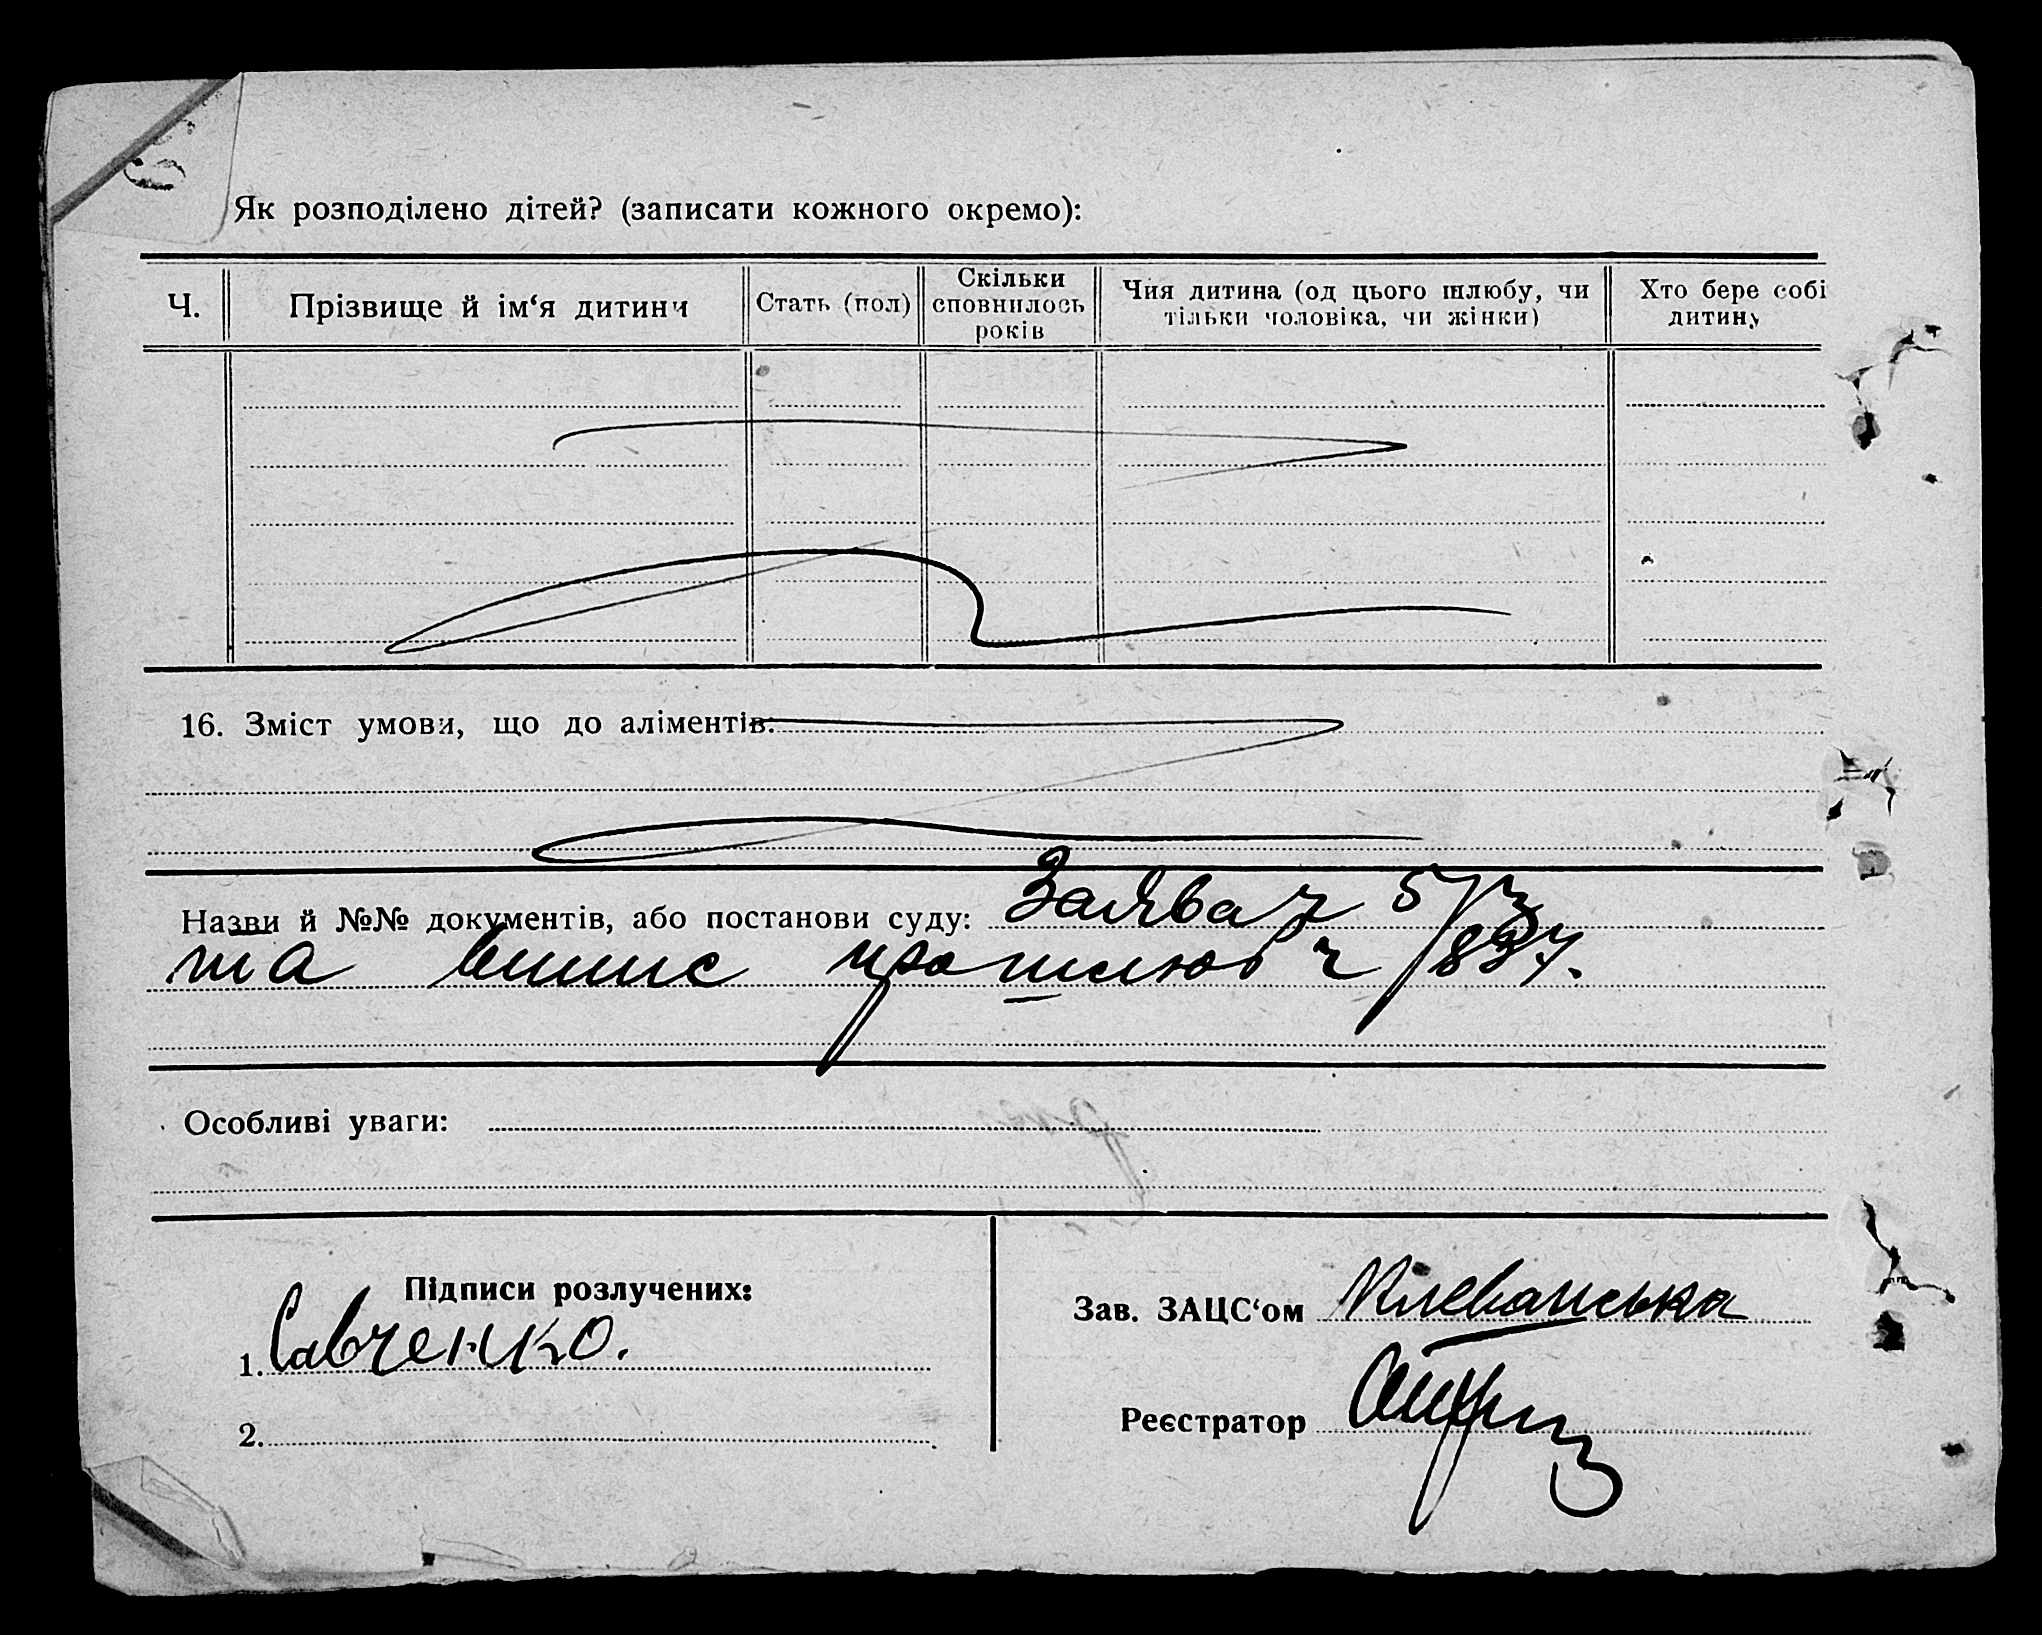 Як розподілено дітей? (записати кожного окремо):
Ч.
Прізвище й ім‘я дитини
Стать (пол)
Скільки сповнилось років
Чия дитина (од цього шлюбу, чи тільки чоловіка, чи жінки)
Хто бере собі дитину
16. Зміст умови, що до аліментів:
Назви й №№ документів, або постанови суду: Заява ч 5/
та випис про шлюб ч 837.
Особливі уваги:
Підписи розлучених:
1. Савченко.
2.
Зав. ЗАЦС‘ом Клеванська
Реєстратор